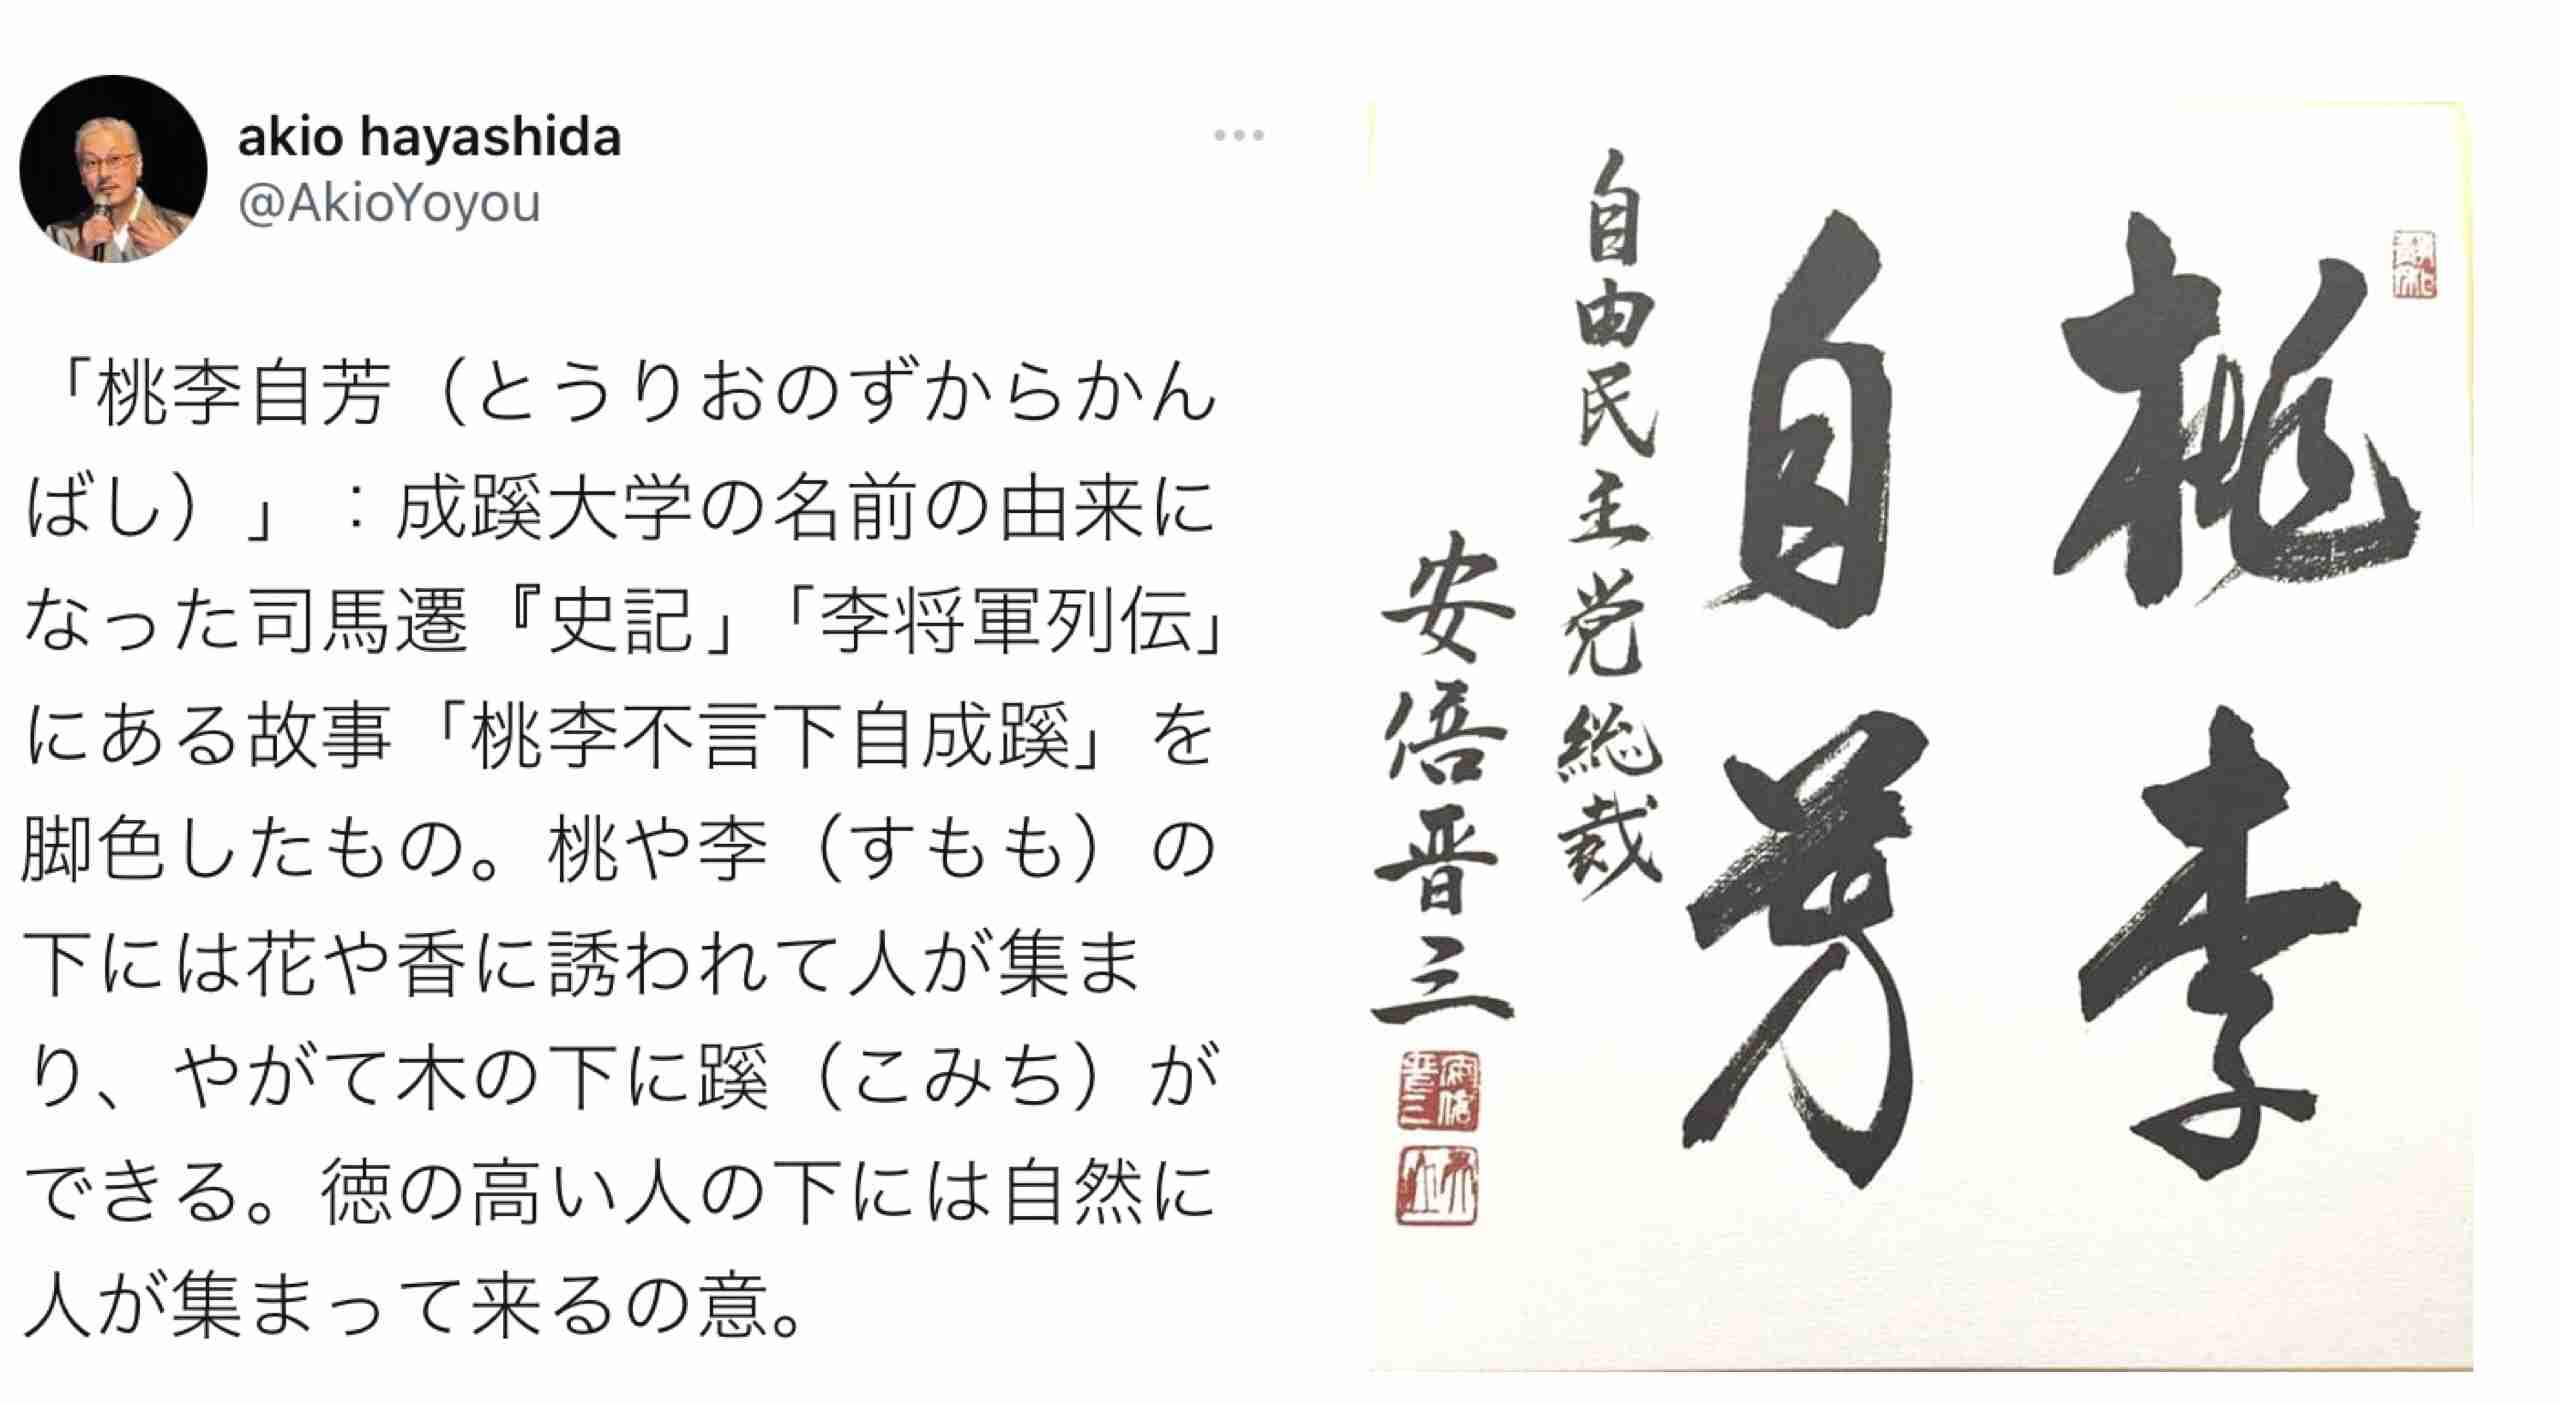 akio hayashida
@AkioYoyou
「桃李自芳（とうりおのずからかん
ばし）」：成蹊大学の名前の由来に
なった司馬遷『史記」「李将軍列伝」
にある故事「桃李不言下自成蹊」を
脚色したもの。桃や李（すもも）の
下には花や香に誘われて人が集ま
り、やがて木の下に蹊（こみち）が
できる。徳の高い人の下には自然に
人が集まって来るの意。
桃李
自芳
自由民主党総裁
安倍晋三
安倍晋三